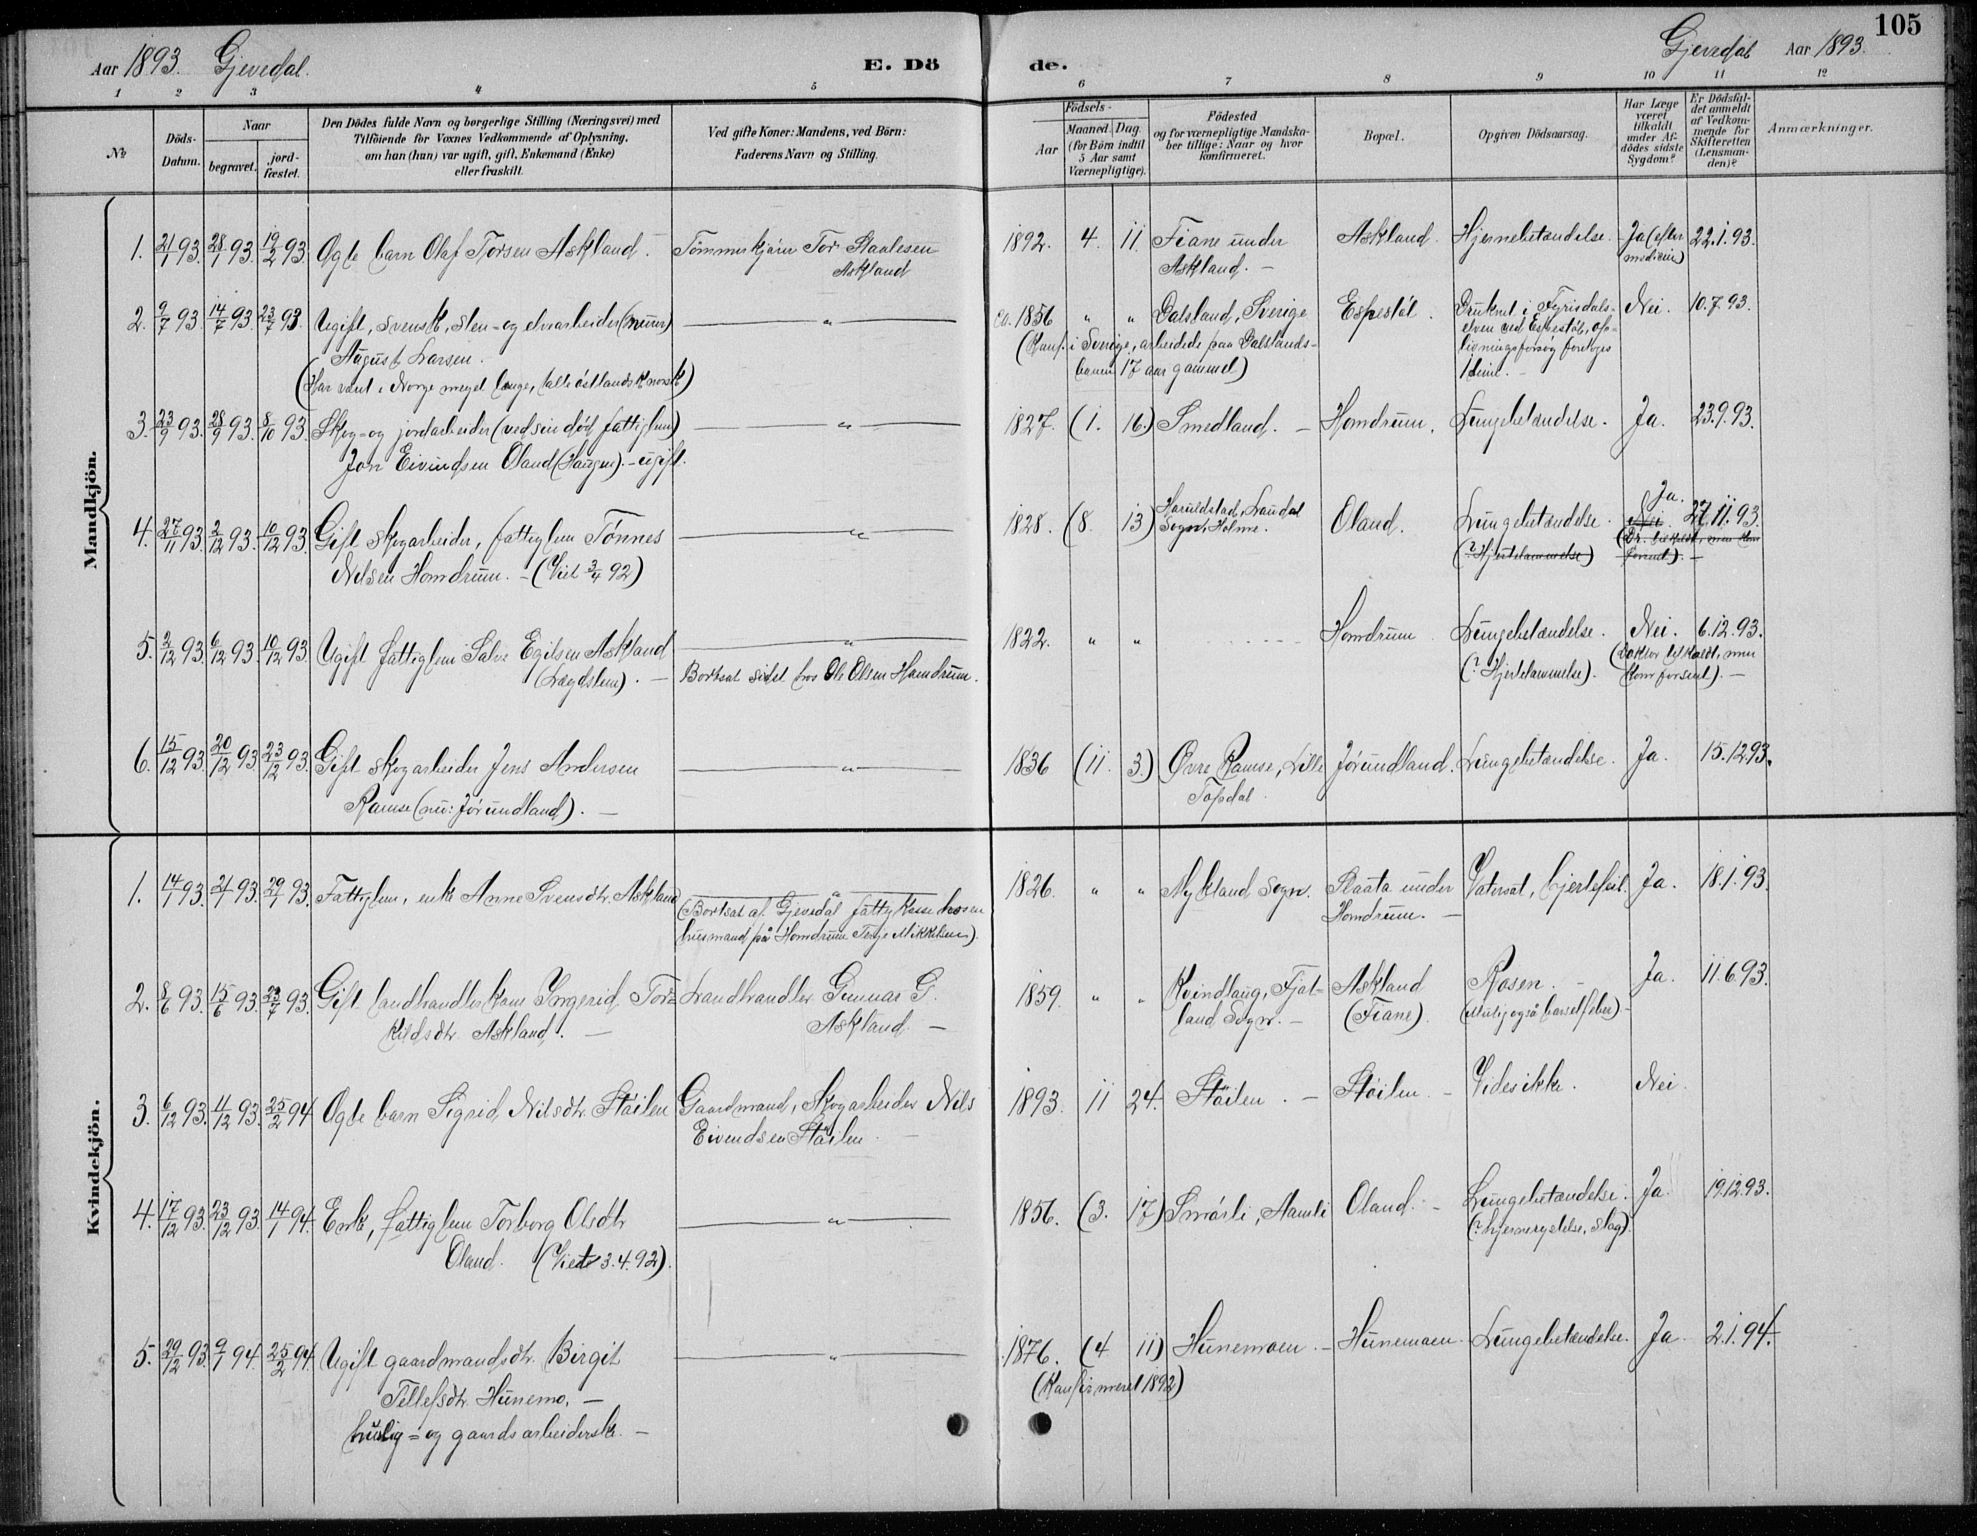 105
Aar 1893. Gjevedal.
E. Dö
de.
Gjevedal Aar 1893.
1 2 3 4 5 6 7 8 9 10 11 12
No
Döds-Datum.
Naar
begravet.
jord-fæstet.
Den Dödes fulde Navn og borgerlige Stilling (Næringsvei) med
Tilföiende for Voxnes Vedkommende af Oplysning,
om han (hun) var ugift, gift, Enkemand (Enke)
eller fraskilt.
Ved gifte Koner: Mandens, ved Börn:
Faderens Navn og Stilling.
Födsels-
Aar
Maaned. Dag
(for Börn indtil
5 Aar samt
Værnepligtige).
Födested
og for værnepligtige Mandska-
ber tillige: Naar og hvor
konfirmeret.
Bopæl.
Opgiven Dödsaarsag.
Har Læge
været
tilkaldt
under Af-
dödes sidste
Sygdom?
Er Dödsfal-
det anmeldt
af Vedkom-
mende for
Skifteretten
(Lensman-
den)?
Anmærkninger.
Mandkjön.
1. 21/1 93. 28/1 93. 19/2 93. Ogte barn Olaf Torsen Askland. Tömmerkjørir Tor Staalesen 1892. 4. 11. Fiane under Askland. Hjernebetændelse. Ja (efter 22.1.93.
Askland Askland. — medicin)
2. 9/7 93. 14/7 93. 23/7 93. Ugift, svensk, sten- og elvearbeider (murer) — " — ca. 1856 " " Dalsland, Sverige Espestøl. Druknet i Fyrisdals- Nei. 10.7.93.
August Larsen. (Konf. i Sverige, arbeidede paa Dalslands- elven ved Espestøl, op-
(Har været i Norge meget længe, talte östlandsk norsk) banen 17 aar gammel) livningsforsøg foretoges
1 time.
3. 23/9 93. 28/9 93. 8/10 93. Skog- og jordarbeider (ved sin død fattiglem) — " — 1827. (1. 16.) Smedland. — Homdrum. Lungebetændelse. Ja. 23.9.93.
Jon Eivindsen Oland (Haugen). — ugift.
4. 27/11 93. 2/12 93. 10/12 93. Gift skogarbeider, fattiglem Tønnes — " — 1828. (8. 13) Haraldstad, Laudal Oland. Lungebetændelse. Nei. Ja. 27.11.93.
Nilsen Homdrum. — (Viet 3/4 92) Sogn, Holme. (? Hjertelammelse) (Dr. tilkaldt, men kom forsent). —
5. 2/12 93. 6/12 93. 10/12 93. Ugift fattiglem Salve Egilsen Askland — " — 1822. " " Homdrum Lungebetændelse. Nei. 6.12.93.
(Lægdslem). — Bortsat sidst hos Ole Olsen Homdrum. (? Hjertelammelse). (Doktor tilkaldt, men
kom forsent). —
6. 15/12 93. 20/12 93. 23/12 93. Gift skogarbeider Jens Andersen — " — 1836 (11. 3.) Øvre Ramse, Lille Jørundland. Lungebetændelse. Ja. 15.12.93.
Ramse (nu: Jørundland). — Topdal.
Kvindekjön.
1. 14/1 93. 21/1 93. 29/1 93. Fattiglem, enke Anne Svensdtr. Askland — " — 1826. " " Mykland Sogn. Slaata under Vatersot, hjertefeil. Ja. 18.1.93.
(Bortsat af Gjevedal fattigkasse hos en Homdrum. —
husmand på Homdrum Terje Mikkelsen).
2. 8/6 93. 15/6 93. 23/7 93. Gift landhandlerkone Ingerid Tor- Landhandler Gunnar G. 1859. " " Kvindlaug, Fjot- Askland Rosen. — Ja. 11.6.93.
kildsdtr. Askland. — Askland. — land Sogn. — (Fiane). (Mulig også barselfeber). —
3. 6/12 93. 11/12 93. 25/2 94. Ogte barn Sigrid Nilsdtr. Støilen Gaardmand, Skogarbeider Nils 1893. 11 24. Støilen. — Støilen. — Vides ikke. Nei.
Eivendsen Støilen. —
4. 17/12 93. 23/12 93. 14/1 94. Enke, fattiglem Torborg Olsdtr. — " — 1856. (3. 17) Smørli, Aamli Oland. — Lungebetændelse. Ja. 19.12.93.
Oland. (Viet 3.4.92). (? hjernerystelse, slag).
5. 29/12 93. 9/1 94. 25/2 94. Ugift gaardmandsdtr. Birgit — " — 1876. (4 11) Hunemoen. — Hunemoen. Lungebetændelse. Ja. 2.1.94.
Tellefsdtr. Hunemo. — (Konfirmeret 1892)
huslig- og gaardsarbeiderske. —